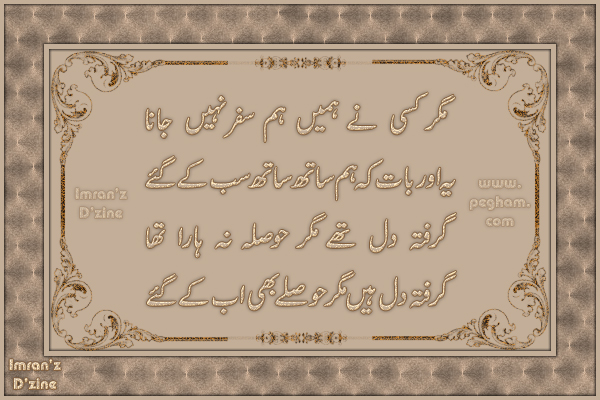 مگر کسی نے ہمیں ہم سفر نہیں جانا
یہ اور بات کہ ہم ساتھ ساتھ سب کے گئے
گرفتہ دل تھے مگر حوصلہ نہ ہارا تھا
گرفتہ دل ہیں مگر حوصلے بھی اب کے گئے
Imran'z
D'zine
www.
pegham.
com
Imran'z
D'zine